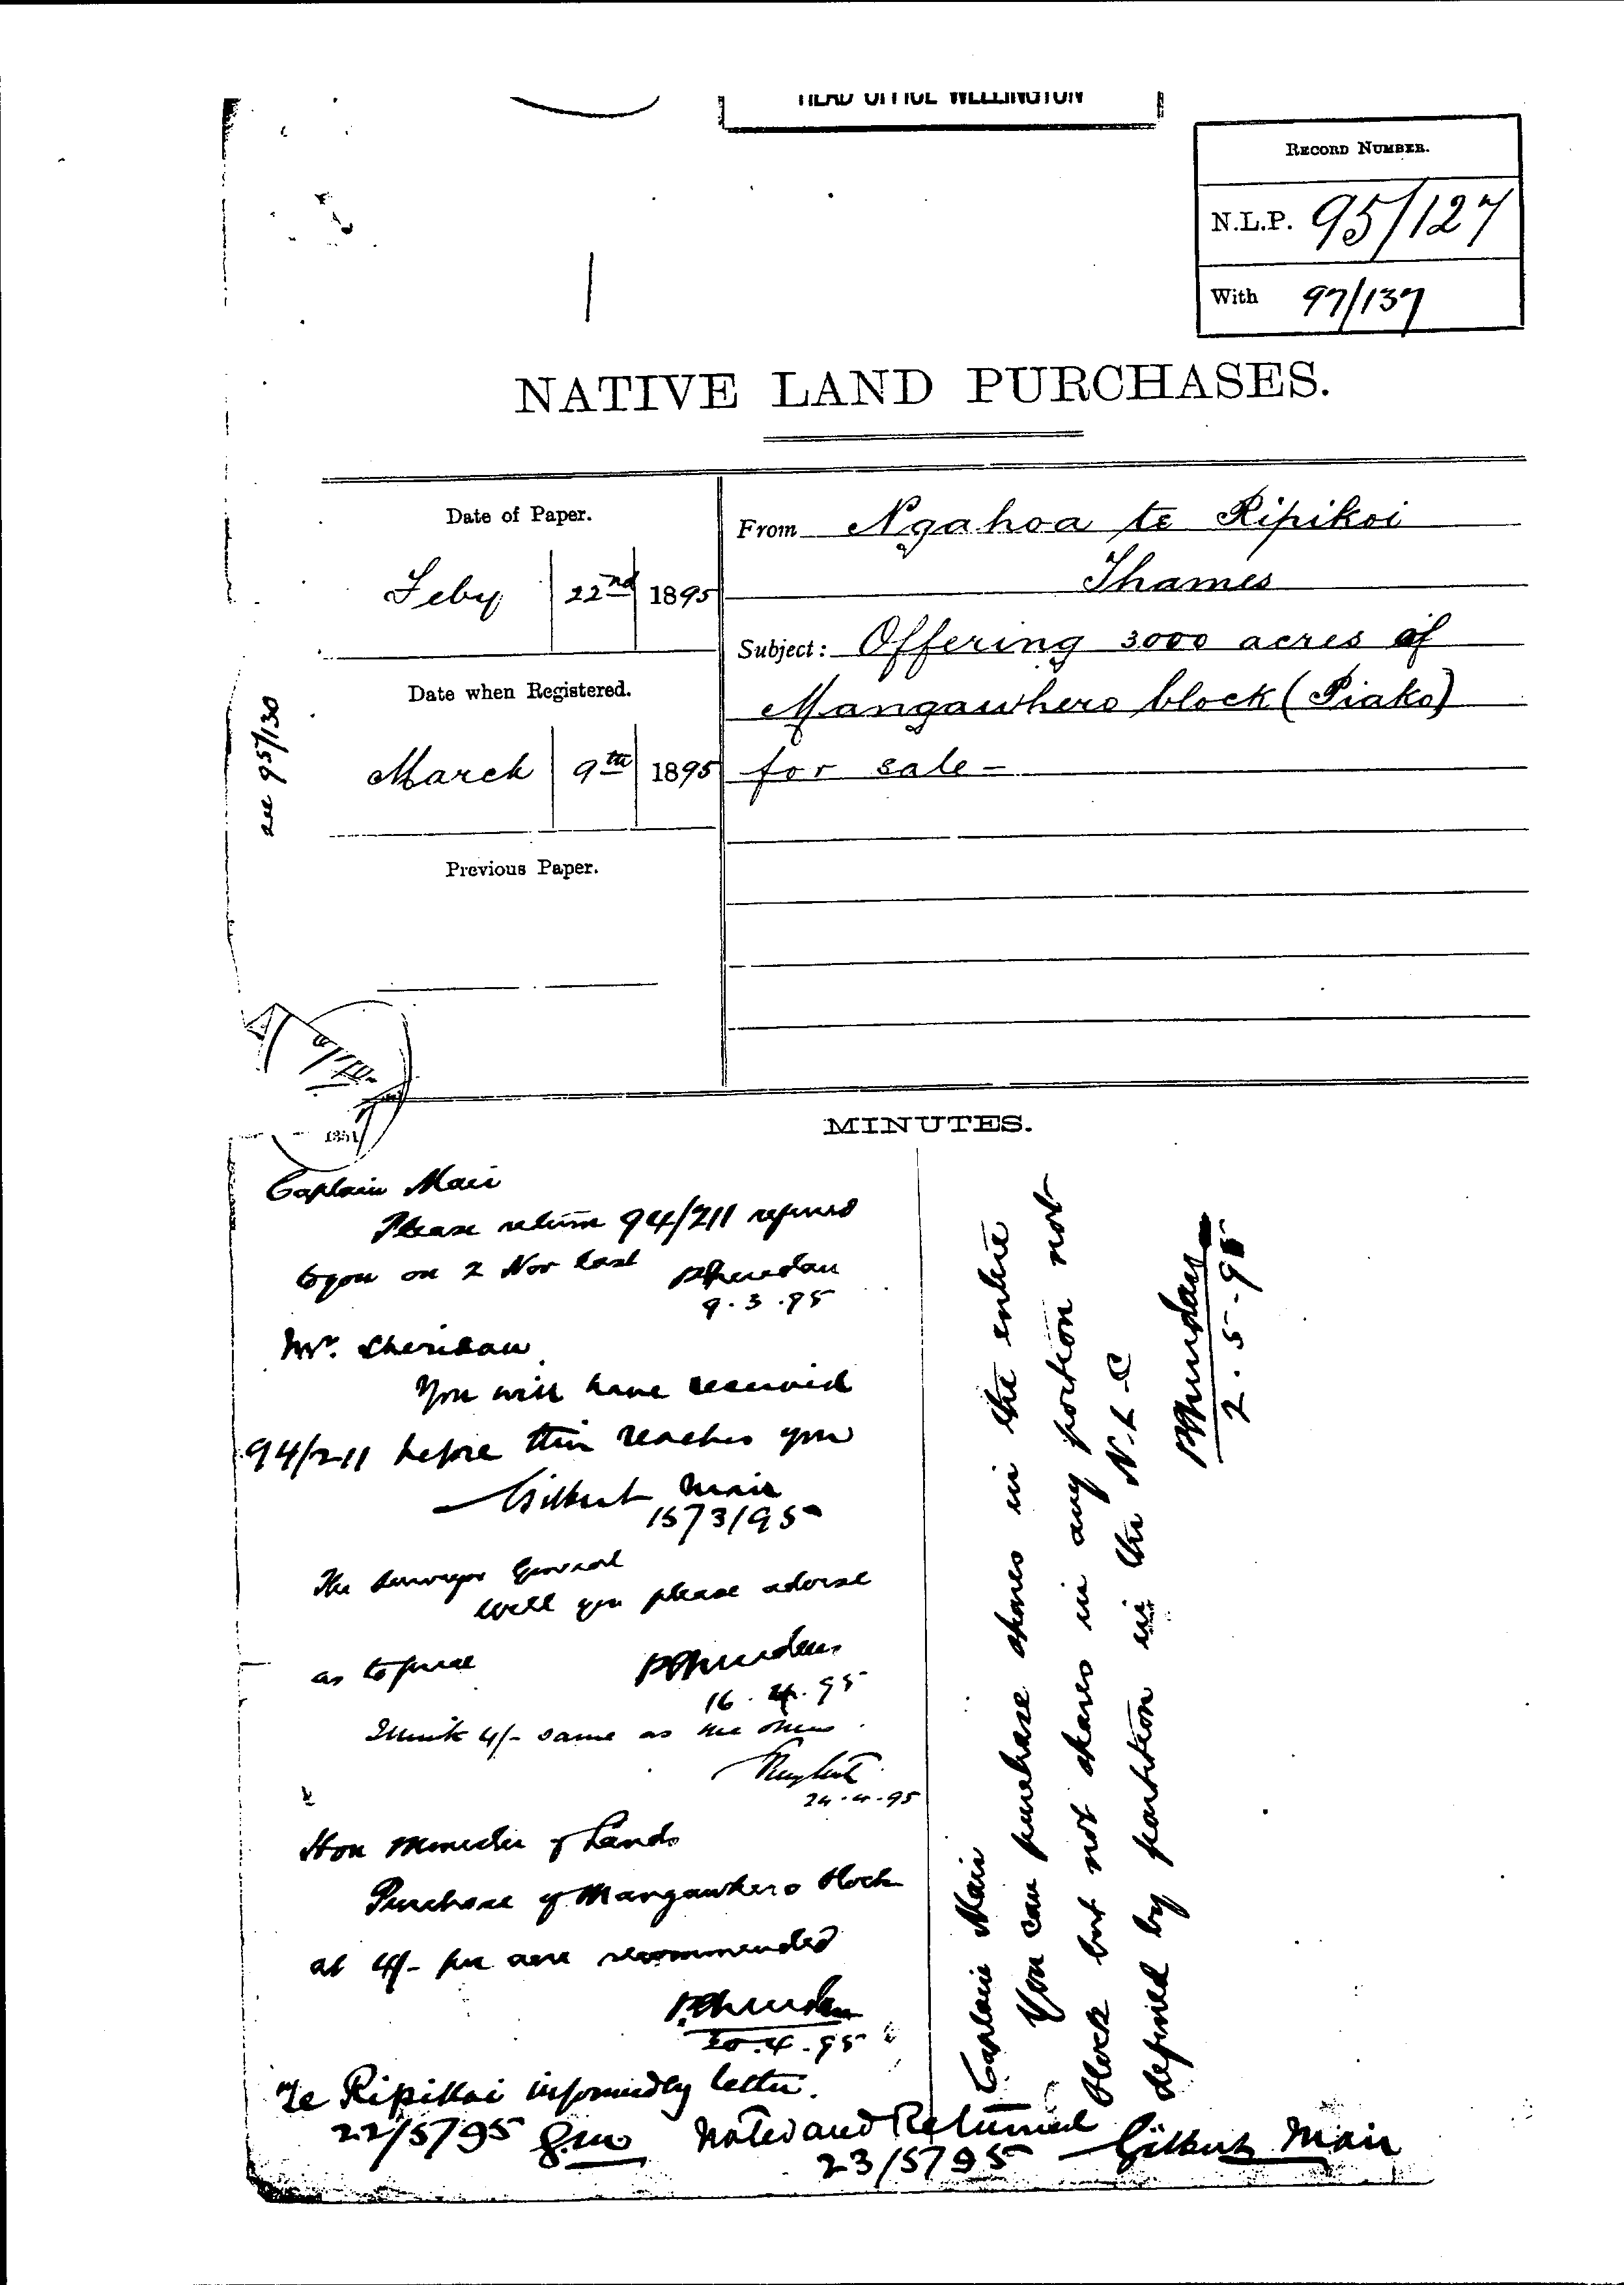 HEAD OFFICE WELLINGTON
RECORD NUMBER.
N.L.P. 95/127
With 97/137
NATIVE LAND PURCHASES.
Date of Paper.
Feby 22nd 1895
Date when Registered.
March 9th 1895
Previous Paper.
see 95/130
From Ngahoa te Ripikoi
Thames
Subject: Offering 3000 acres of
Mangawhero block (Piako)
for sale-
MINUTES.
Captain Mair
Please return 94/211 referred
to you on 2 Nov last PSheridan
9.3.95
Mr. Sheridan
You will have received
94/211 before this reaches you
Gilbert Mair
15/3/95
The Surveyor General
Will you please advise
as to price PSheridan
16.4.95
I think 4/- same as the others
24.4.95
Hon Minister of Lands
Purchase of Mangawhero Block
at 4/- per acre recommended
PSheridan
30.4.95
Te Ripikoi informed by letter.
22/5/95 G.M.
Captain Mair
You can purchase shares in the entire
Block but not shares in any portion not
defined by partition in the N.L.C
PSheridan
2.5.95
Noted and Returned
23/5/95 Gilbert Mair